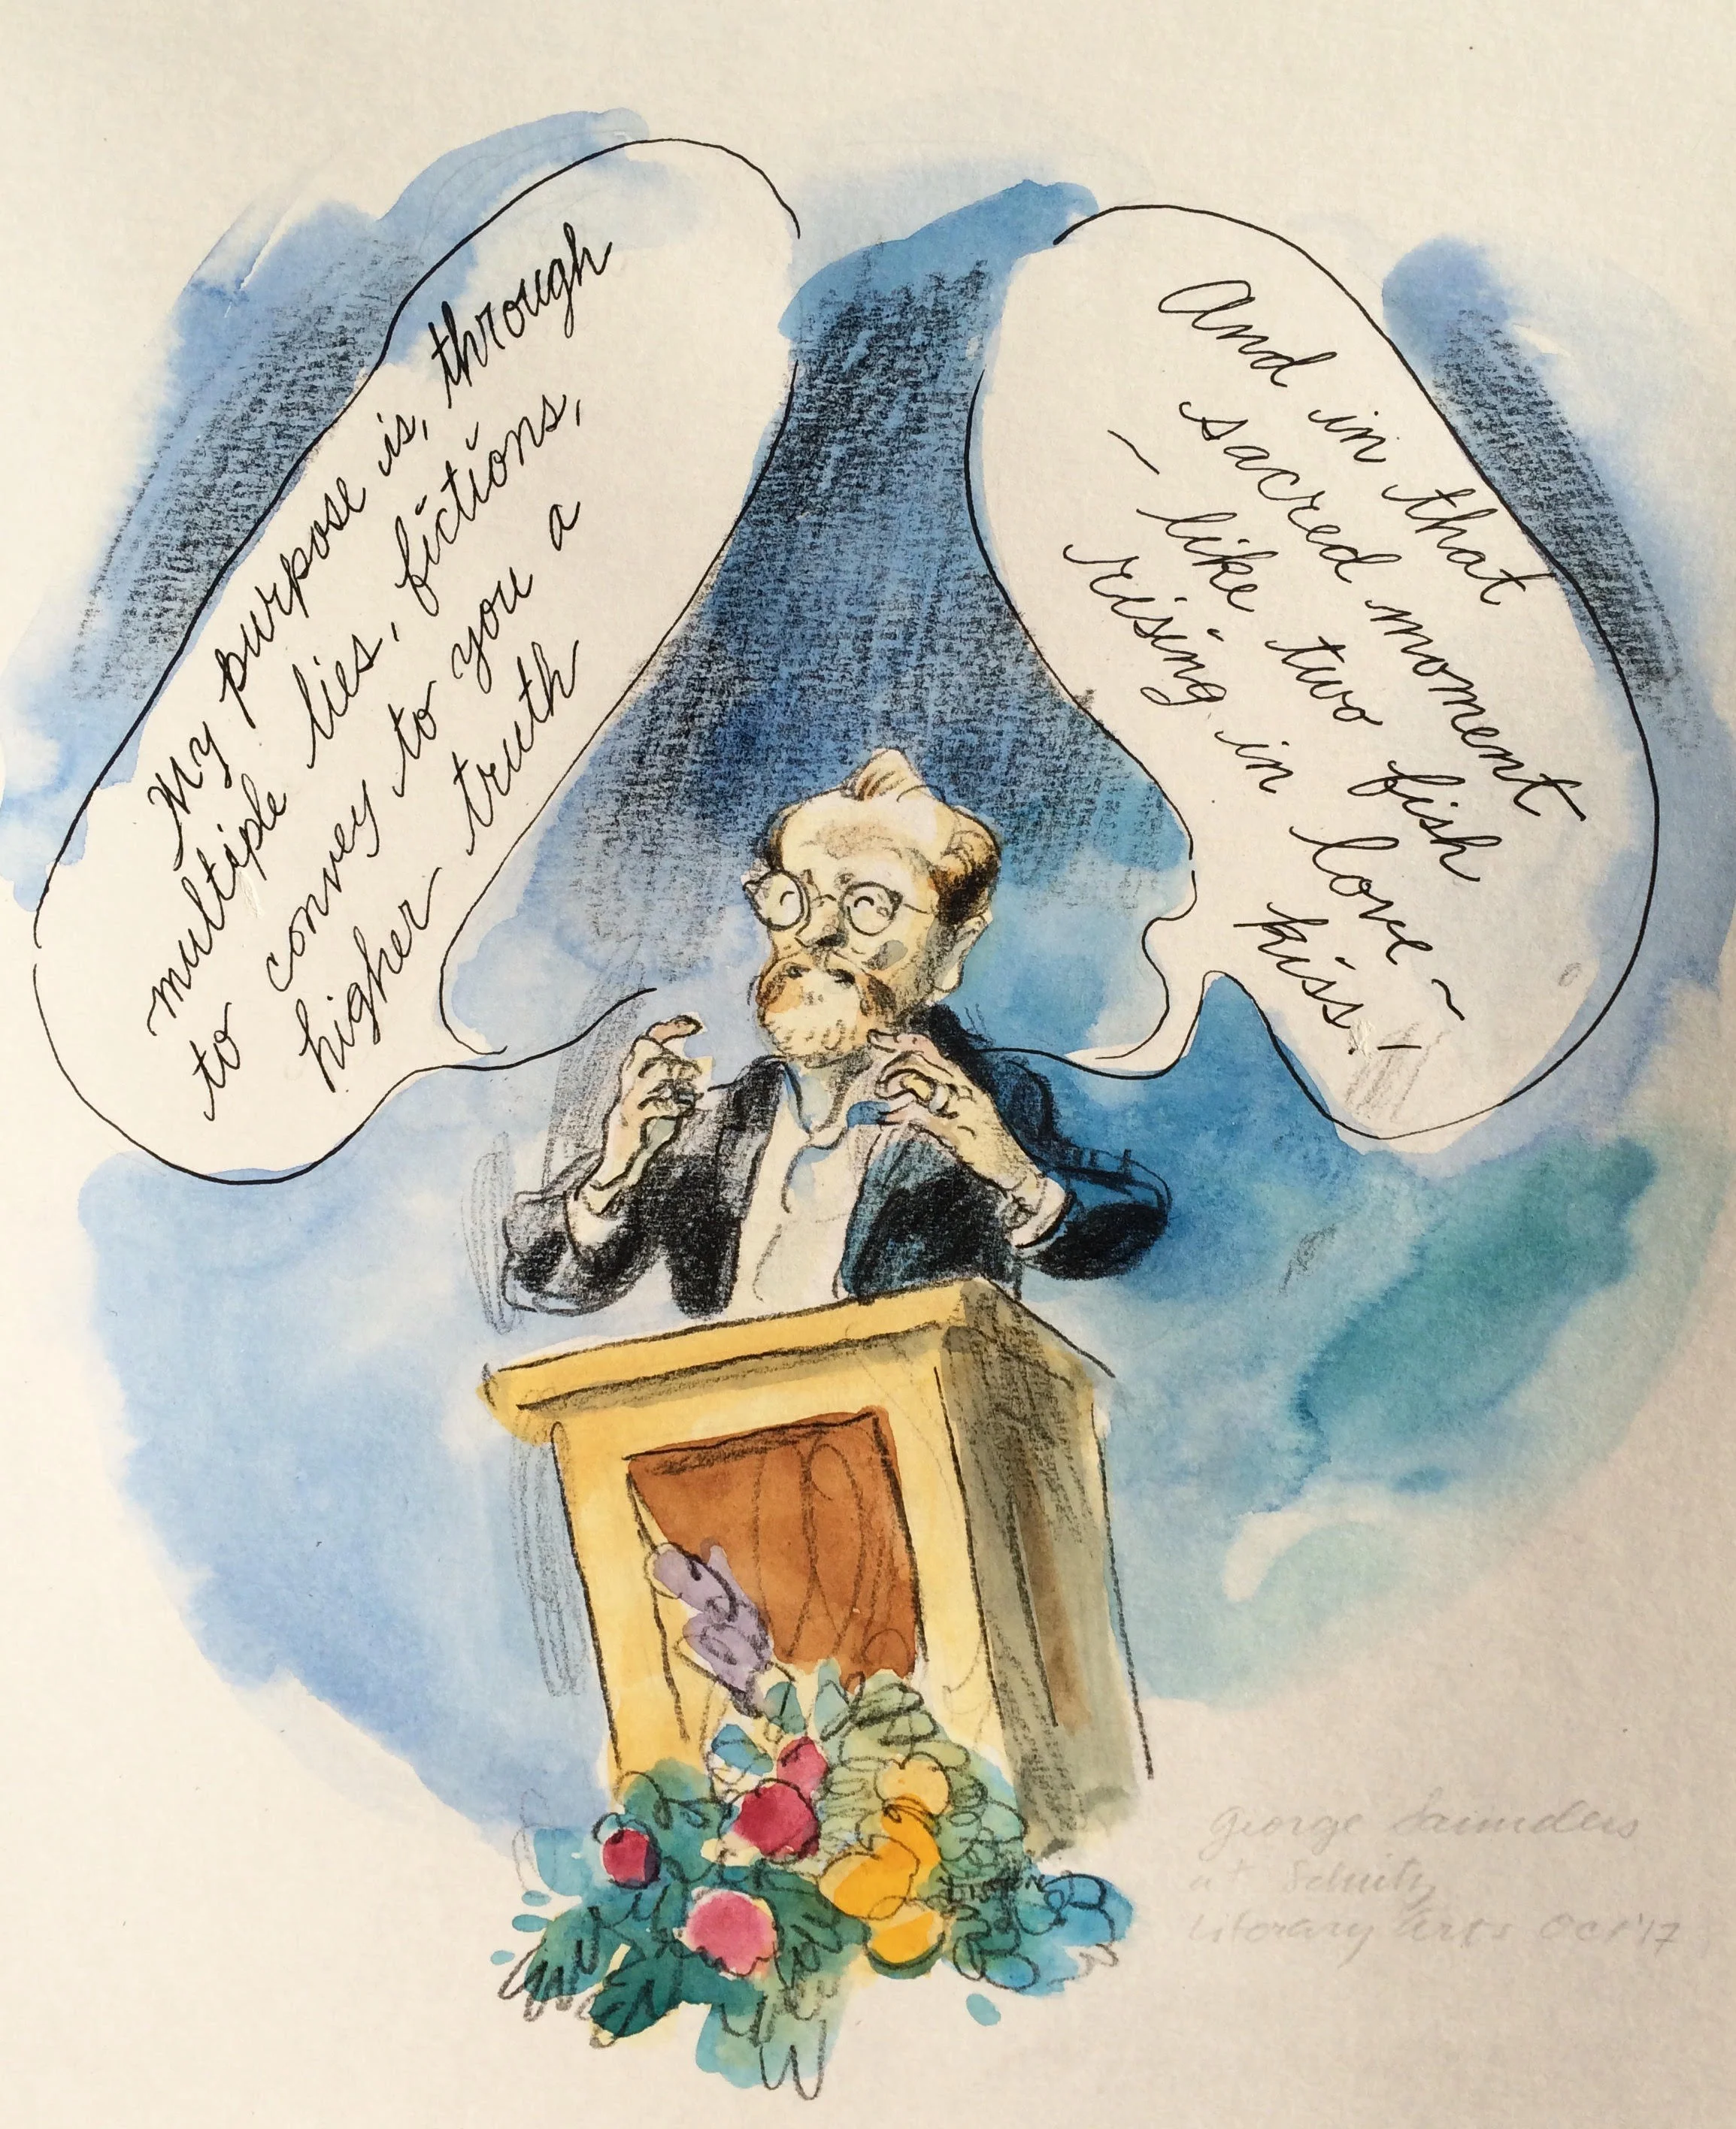 My purpose is, through
multiple lies, fictions,
to convey to you a
higher truth
And in that
sacred moment
~ like two fish
rising in love ~
kiss!
George Saunders
at Schnitz
Literary Arts Oct '17